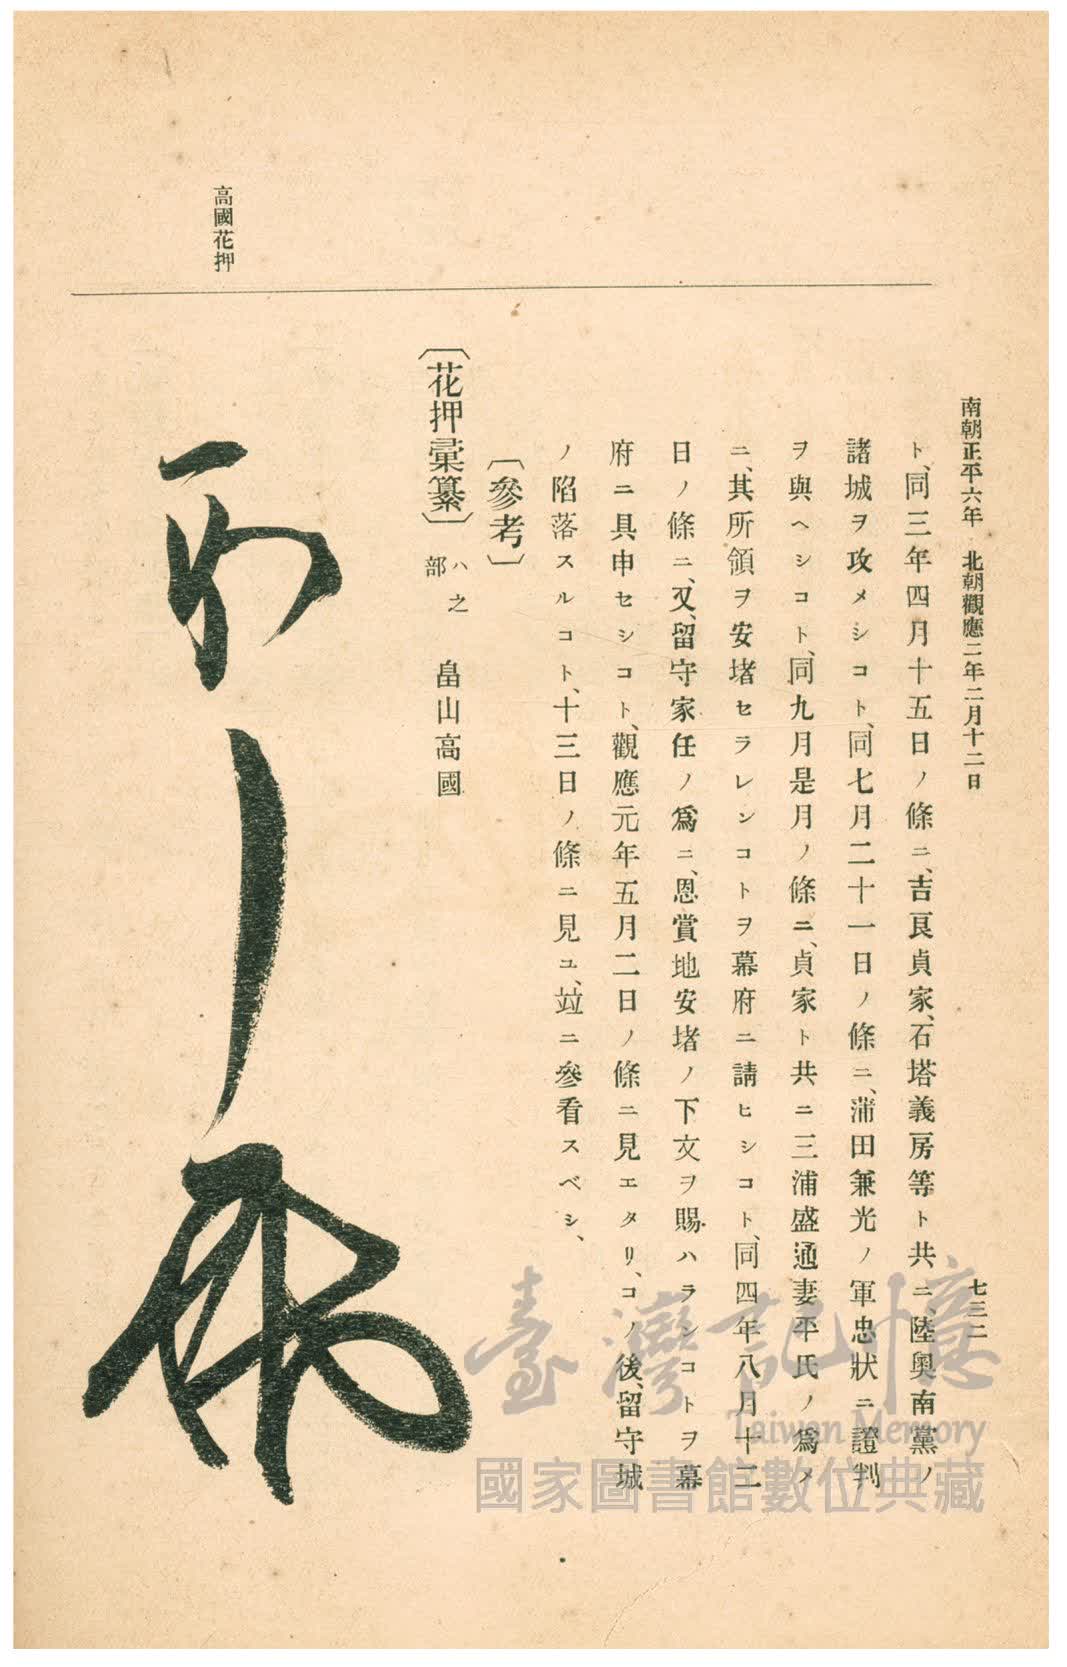 南朝正平六年 北朝觀應二年二月十二日
七三二
ト、同三年四月十五日ノ條ニ、吉良貞家、石塔義房等ト共ニ、陸奧南黨ノ
諸城ヲ攻メシコト、同七月二十一日ノ條ニ、蒲田兼光ノ軍忠狀ニ證判
ヲ與ヘシコト、同九月是月ノ條ニ、貞家ト共ニ三浦盛通妻平氏ノ爲メ
ニ、其所領ヲ安堵セラレンコトヲ幕府ニ請ヒシコト、同四年八月十二
日ノ條ニ、又、留守家任ノ爲ニ、恩賞地安堵ノ下文ヲ賜ハランコトヲ幕
府ニ具申セシコト、觀應元年五月二日ノ條ニ見エタリ、コノ後、留守城
ノ陷落スルコト、十三日ノ條ニ見ユ、竝ニ參看スベシ、
〔參考〕
〔花押彙纂〕ハ之部 畠山高國
高國花押
臺灣記憶
Taiwan Memory
國家圖書館數位典藏